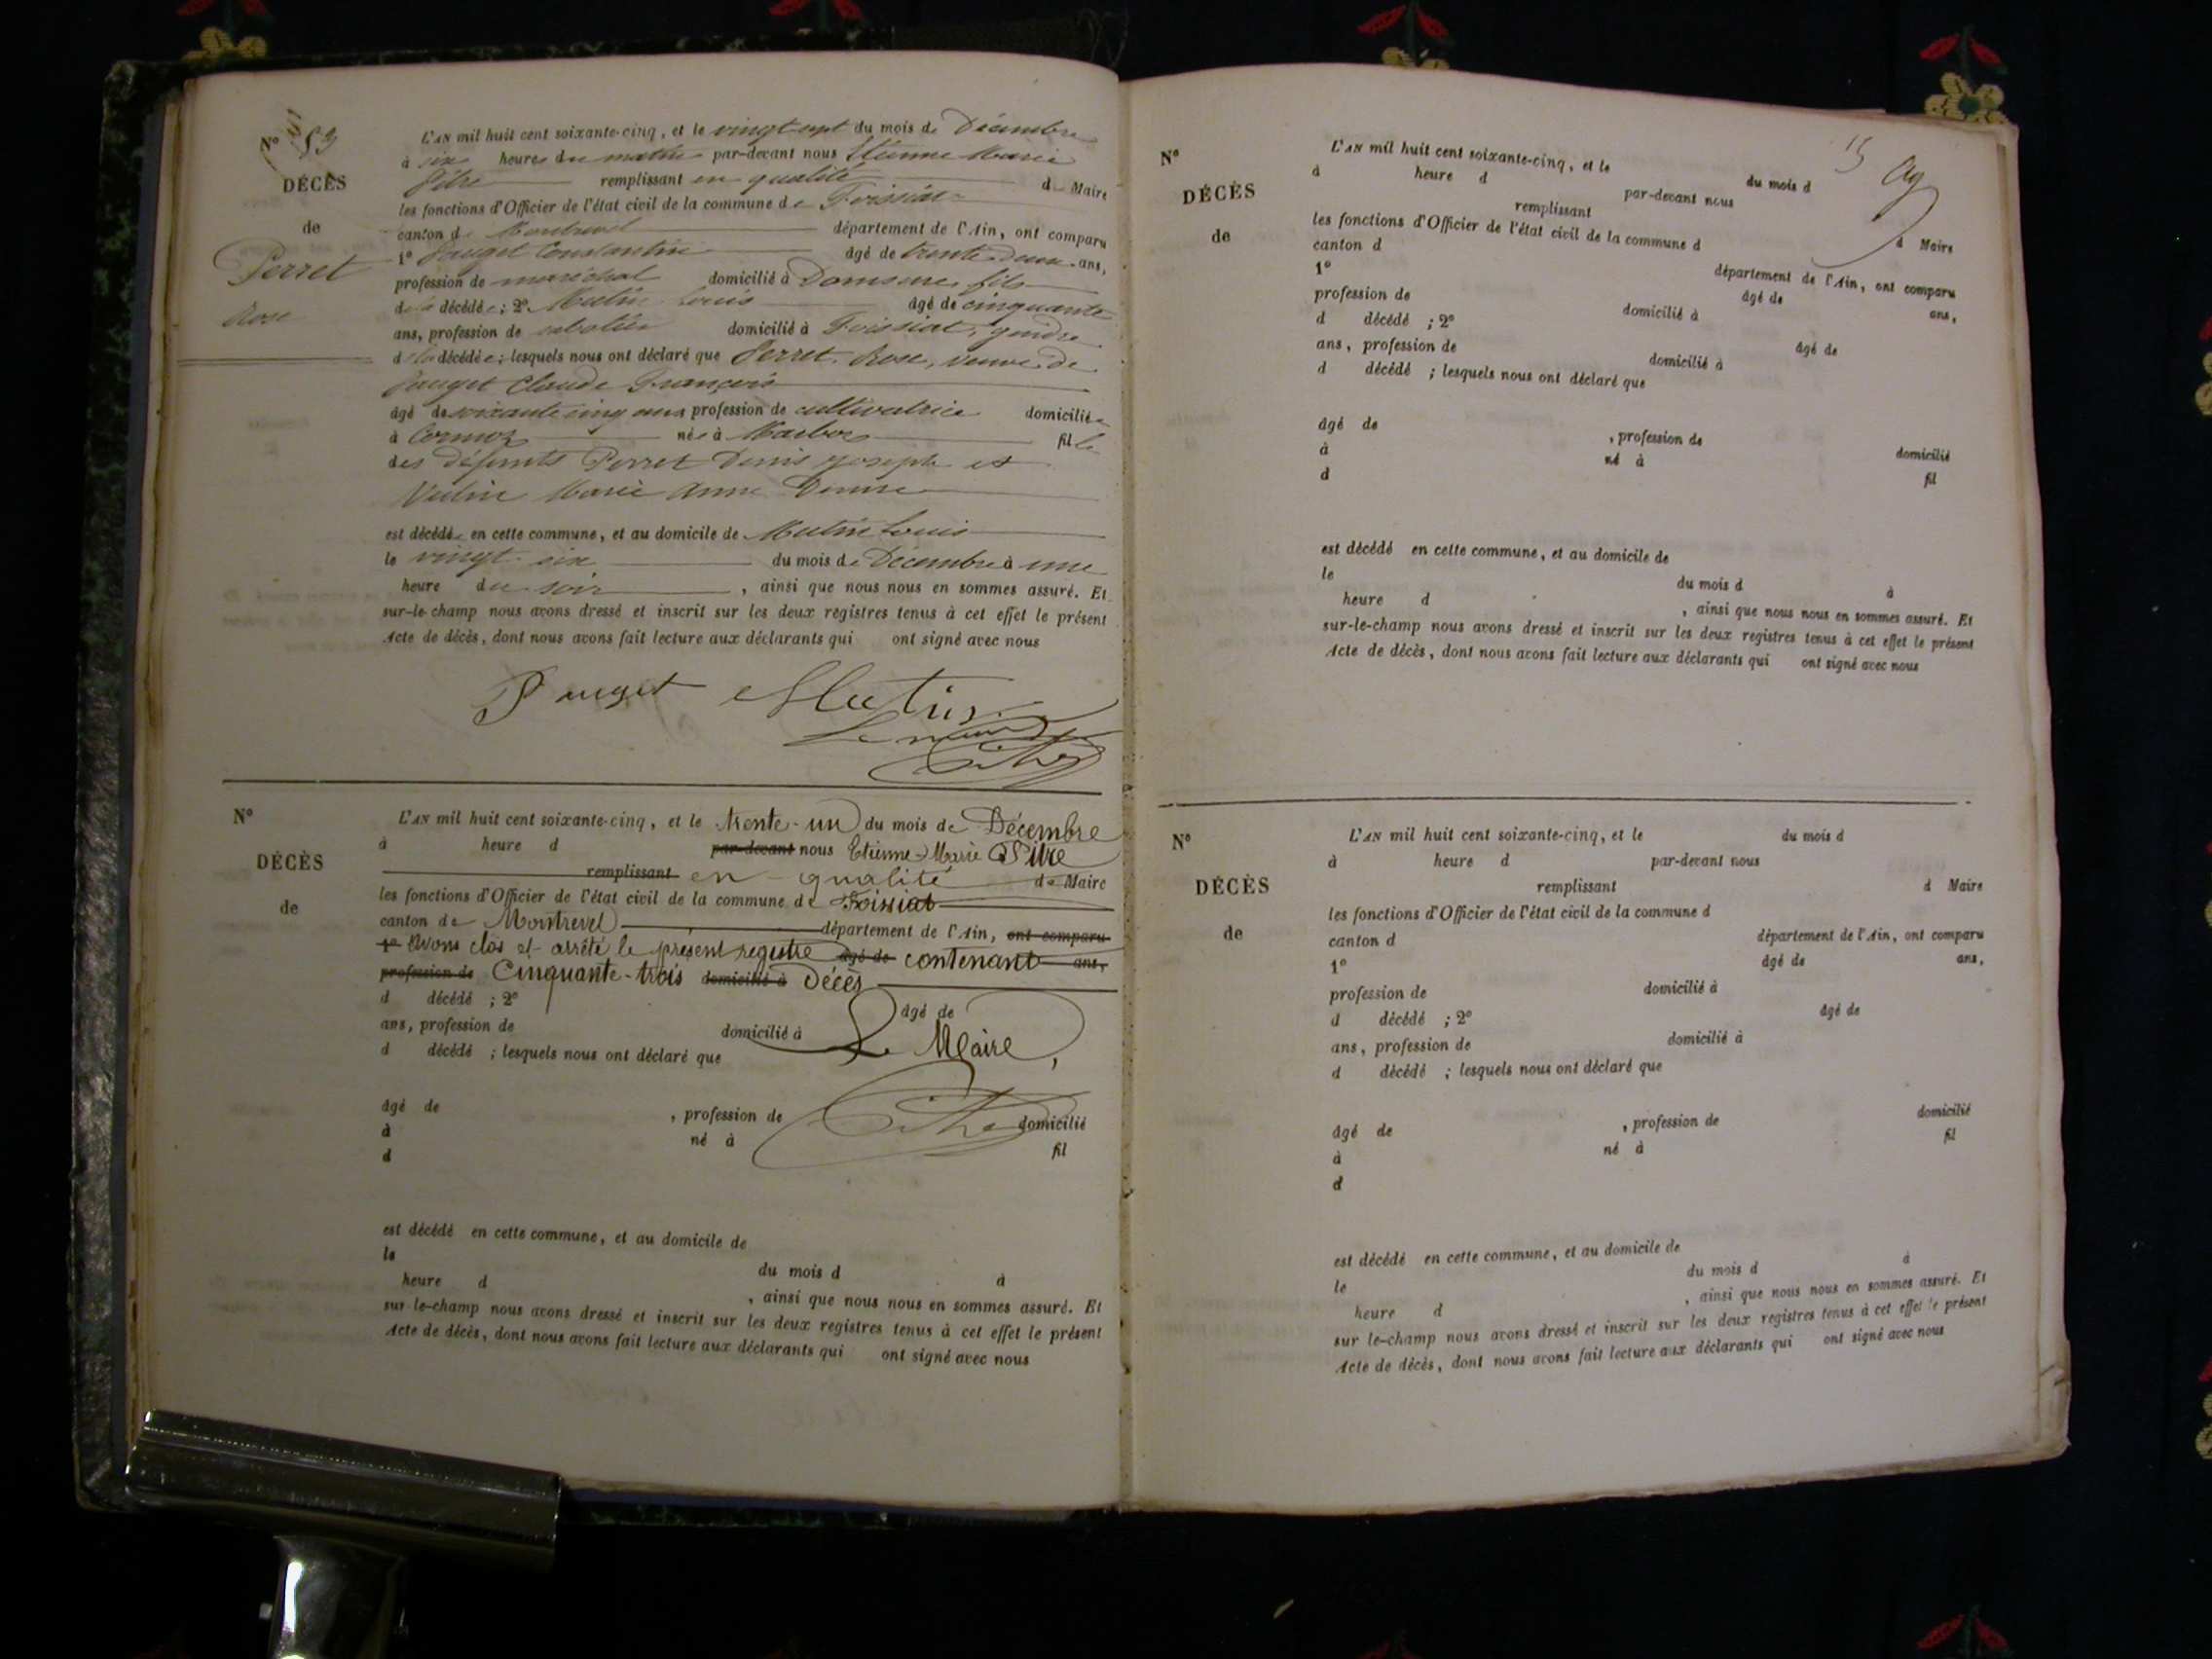 N° 53
DÉCÈS
de
Perret
Rose
L'AN mil huit cent soixante-cinq, et le vingt sept du mois de Décembre
à six heures du matin par-devant nous Etienne Marie
Pitre remplissant en qualité de Maire
les fonctions d'Officier de l'état civil de la commune de Foissiat
canton de Montrevel département de l'Ain, ont comparu
1° Pauget Constantin âgé de trente deux ans,
profession de maréchal domicilié à Domsure, fils
de la décédée ; 2° Mutin Louis âgé de cinquante
ans, profession de sabotier domicilié à Foissiat, gendre
de la décédée ; lesquels nous ont déclaré que Perret Rose, veuve de
Pauget Claude François
âgé de soixante cinq ans profession de cultivatrice domiciliée
à Cormoz née à Marboz fille
des défunts Perret Denis joseph et
Marie Anne
est décédée en cette commune, et au domicile de Mutin Louis
le vingt-six du mois de Décembre à une
heure du soir , ainsi que nous nous en sommes assuré. Et
sur-le-champ nous avons dressé et inscrit sur les deux registres tenus à cet effet le présent
Acte de décès, dont nous avons fait lecture aux déclarants qui ont signé avec nous
Pauget Mutin
Le maire
Pitre
N°
DÉCÈS
de
L'AN mil huit cent soixante-cinq, et le trente-un du mois de Décembre
à heure d par-devant nous Etienne-Marie Pitre
remplissant en qualité de Maire
les fonctions d'Officier de l'état civil de la commune de Foissiat
canton de Montrevel département de l'Ain, ont comparu
1° Avons clos et arrêté le présent registre âgé de contenant ans,
profession de Cinquante-trois domicilié à Décès
d décédé ; 2° âgé de
ans, profession de domicilié à Le Maire,
d décédé ; lesquels nous ont déclaré que
Pitre
âgé de , profession de domicilié
à né à fil
d
est décédé en cette commune, et au domicile de
le du mois d à
heure d , ainsi que nous nous en sommes assuré. Et
sur-le-champ nous avons dressé et inscrit sur les deux registres tenus à cet effet le présent
Acte de décès, dont nous avons fait lecture aux déclarants qui ont signé avec nous
N°
DÉCÈS
de
L'AN mil huit cent soixante-cinq, et le du mois d
à heure d par-devant nous
remplissant d Maire
les fonctions d'Officier de l'état civil de la commune d
canton d département de l'Ain, ont comparu
1° âgé de ans,
profession de domicilié à
d décédé ; 2° âgé de
ans, profession de domicilié à
d décédé ; lesquels nous ont déclaré que
âgé de , profession de domicilié
à né à fil
d
est décédé en cette commune, et au domicile de
le du mois d à
heure d , ainsi que nous nous en sommes assuré. Et
sur-le-champ nous avons dressé et inscrit sur les deux registres tenus à cet effet le présent
Acte de décès, dont nous avons fait lecture aux déclarants qui ont signé avec nous
N°
DÉCÈS
de
L'AN mil huit cent soixante-cinq, et le du mois d
à heure d par-devant nous
remplissant d Maire
les fonctions d'Officier de l'état civil de la commune d
canton d département de l'Ain, ont comparu
1° âgé de ans,
profession de domicilié à
d décédé ; 2° âgé de
ans, profession de domicilié à
d décédé ; lesquels nous ont déclaré que
âgé de , profession de domicilié
à né à fil
d
est décédé en cette commune, et au domicile de
le du mois d à
heure d , ainsi que nous nous en sommes assuré. Et
sur le-champ nous avons dressé et inscrit sur les deux registres tenus à cet effet le présent
Acte de décès, dont nous avons fait lecture aux déclarants qui ont signé avec nous